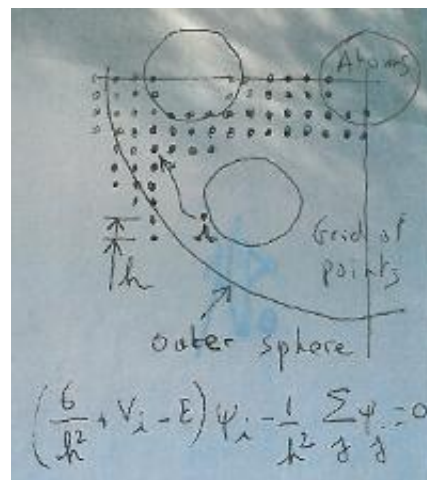 Atoms
h
h
Grid of
points
outer sphere
(6/h² + Vᵢ - E) ψᵢ - 1/h² Σⱼ ψⱼ = 0